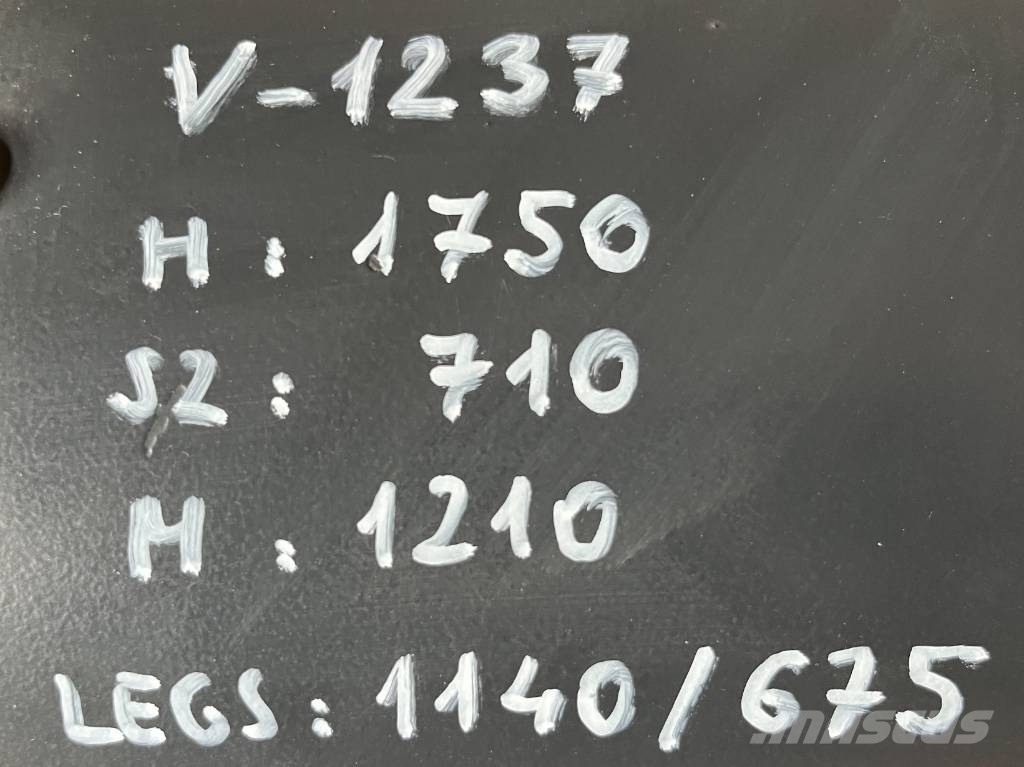 V-1237
H: 1750
S2: 710
H: 1210
LEGS: 1140/675
mascus